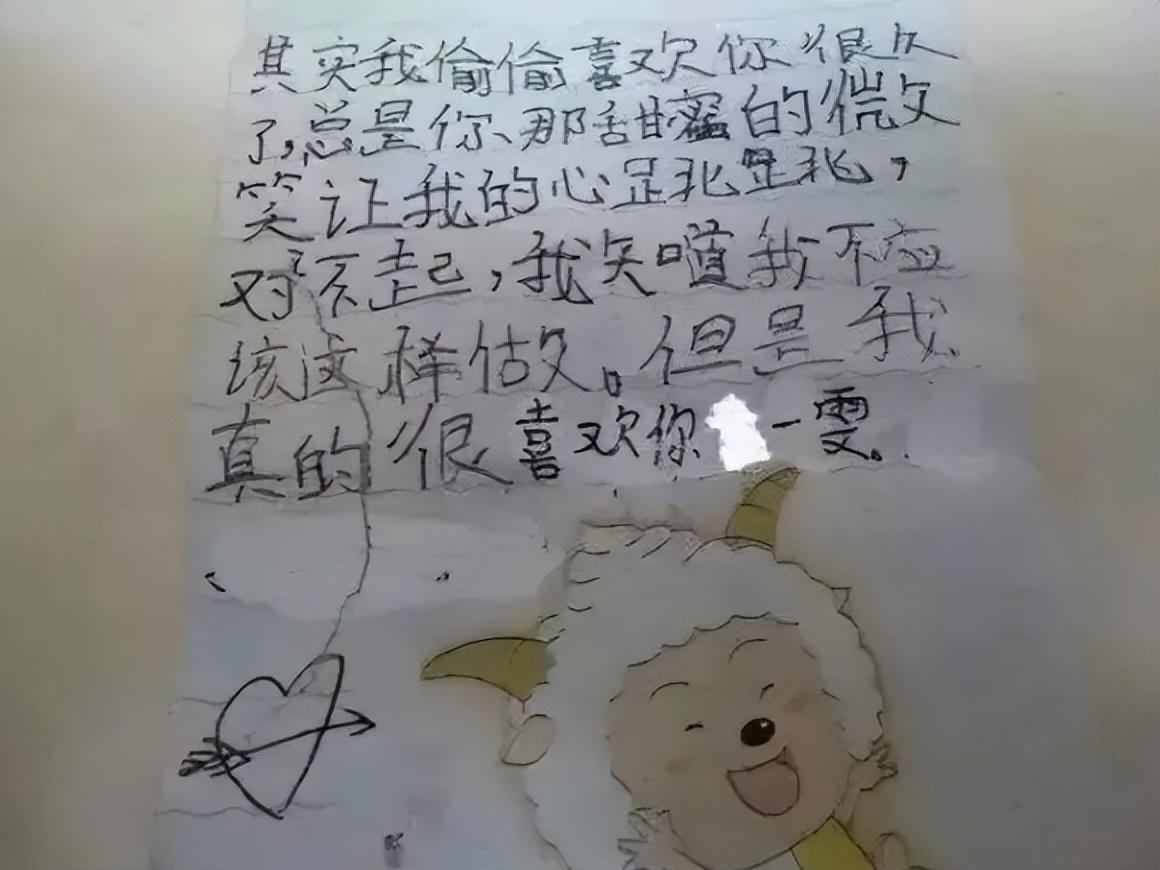 其实我偷偷喜欢你很久
了,总是你、那甜蜜的微
笑让我的心是非是非,
对不起,我知道我不应
该这样做。但是我
真的很喜欢你 一雯。